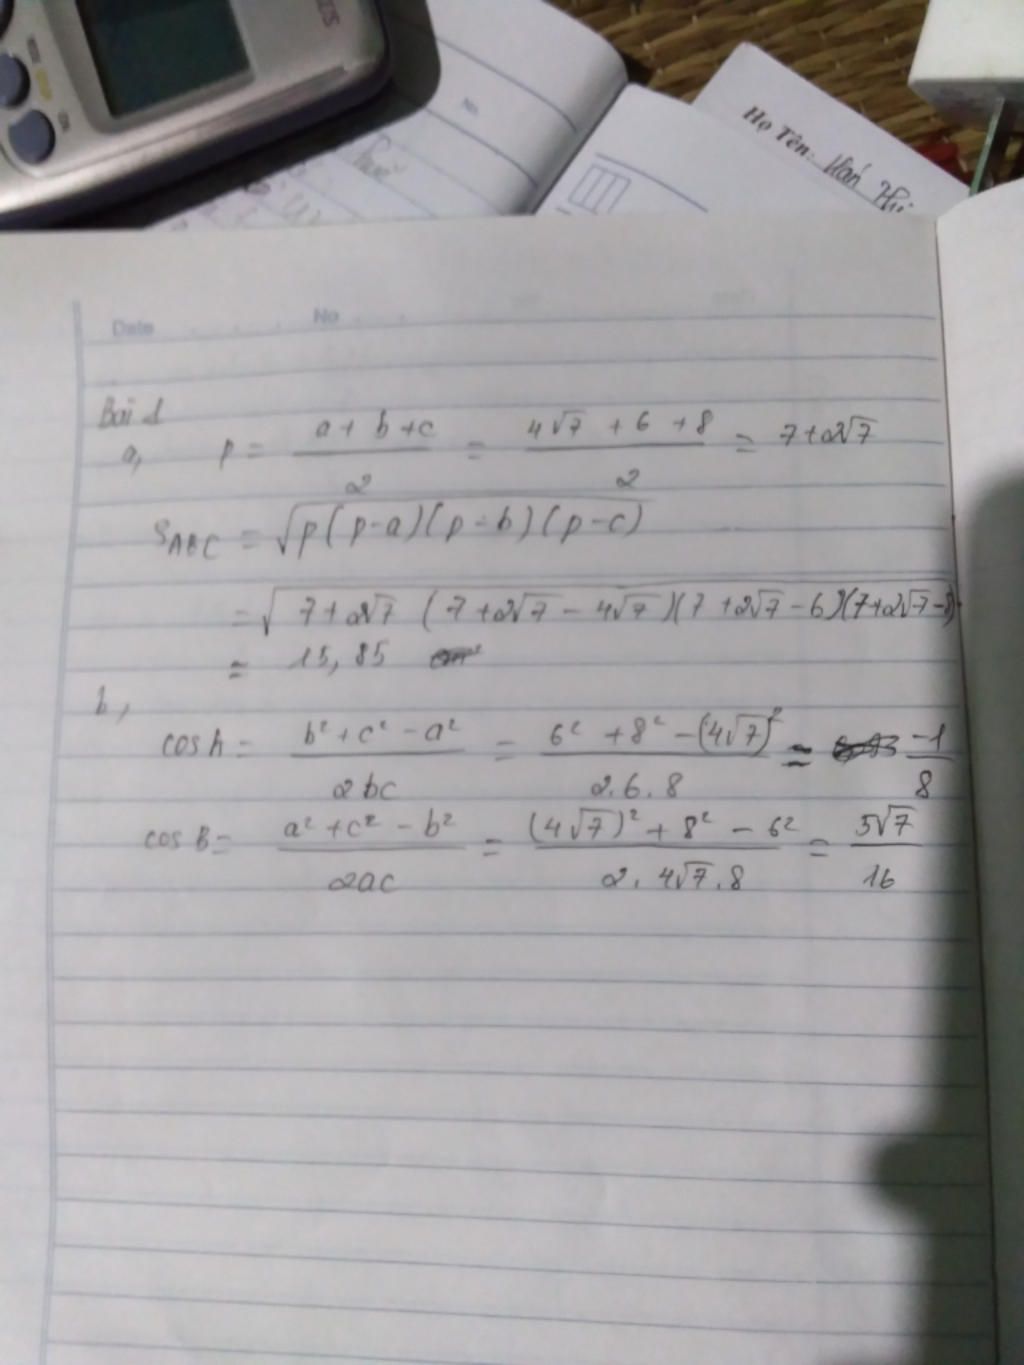 Họ Tên:
Date No
Bài 1
a, p = a + b + c / 2 = 4√7 + 6 + 8 / 2 = 7 + 2√7
S_ABC = √p(p-a)(p-b)(p-c)
= √7+2√7 (7+2√7 - 4√7)(7+2√7-6)(7+2√7-8)
= 15,85
b,
cos A = b² + c² - a² / 2bc = 6² + 8² - (4√7)² / 2.6.8 = -1 / 8
cos B = a² + c² - b² / 2ac = (4√7)² + 8² - 6² / 2.4√7.8 = 5√7 / 16